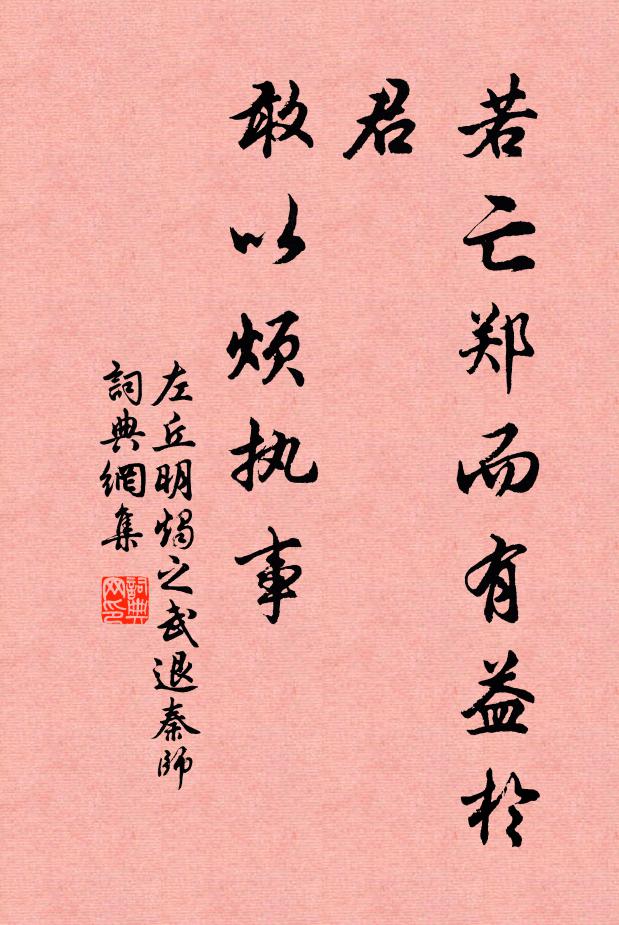 若亡郑而有益於
君
敢以烦执事
左丘明燭之武退秦師
詞典網集
詞典
网印